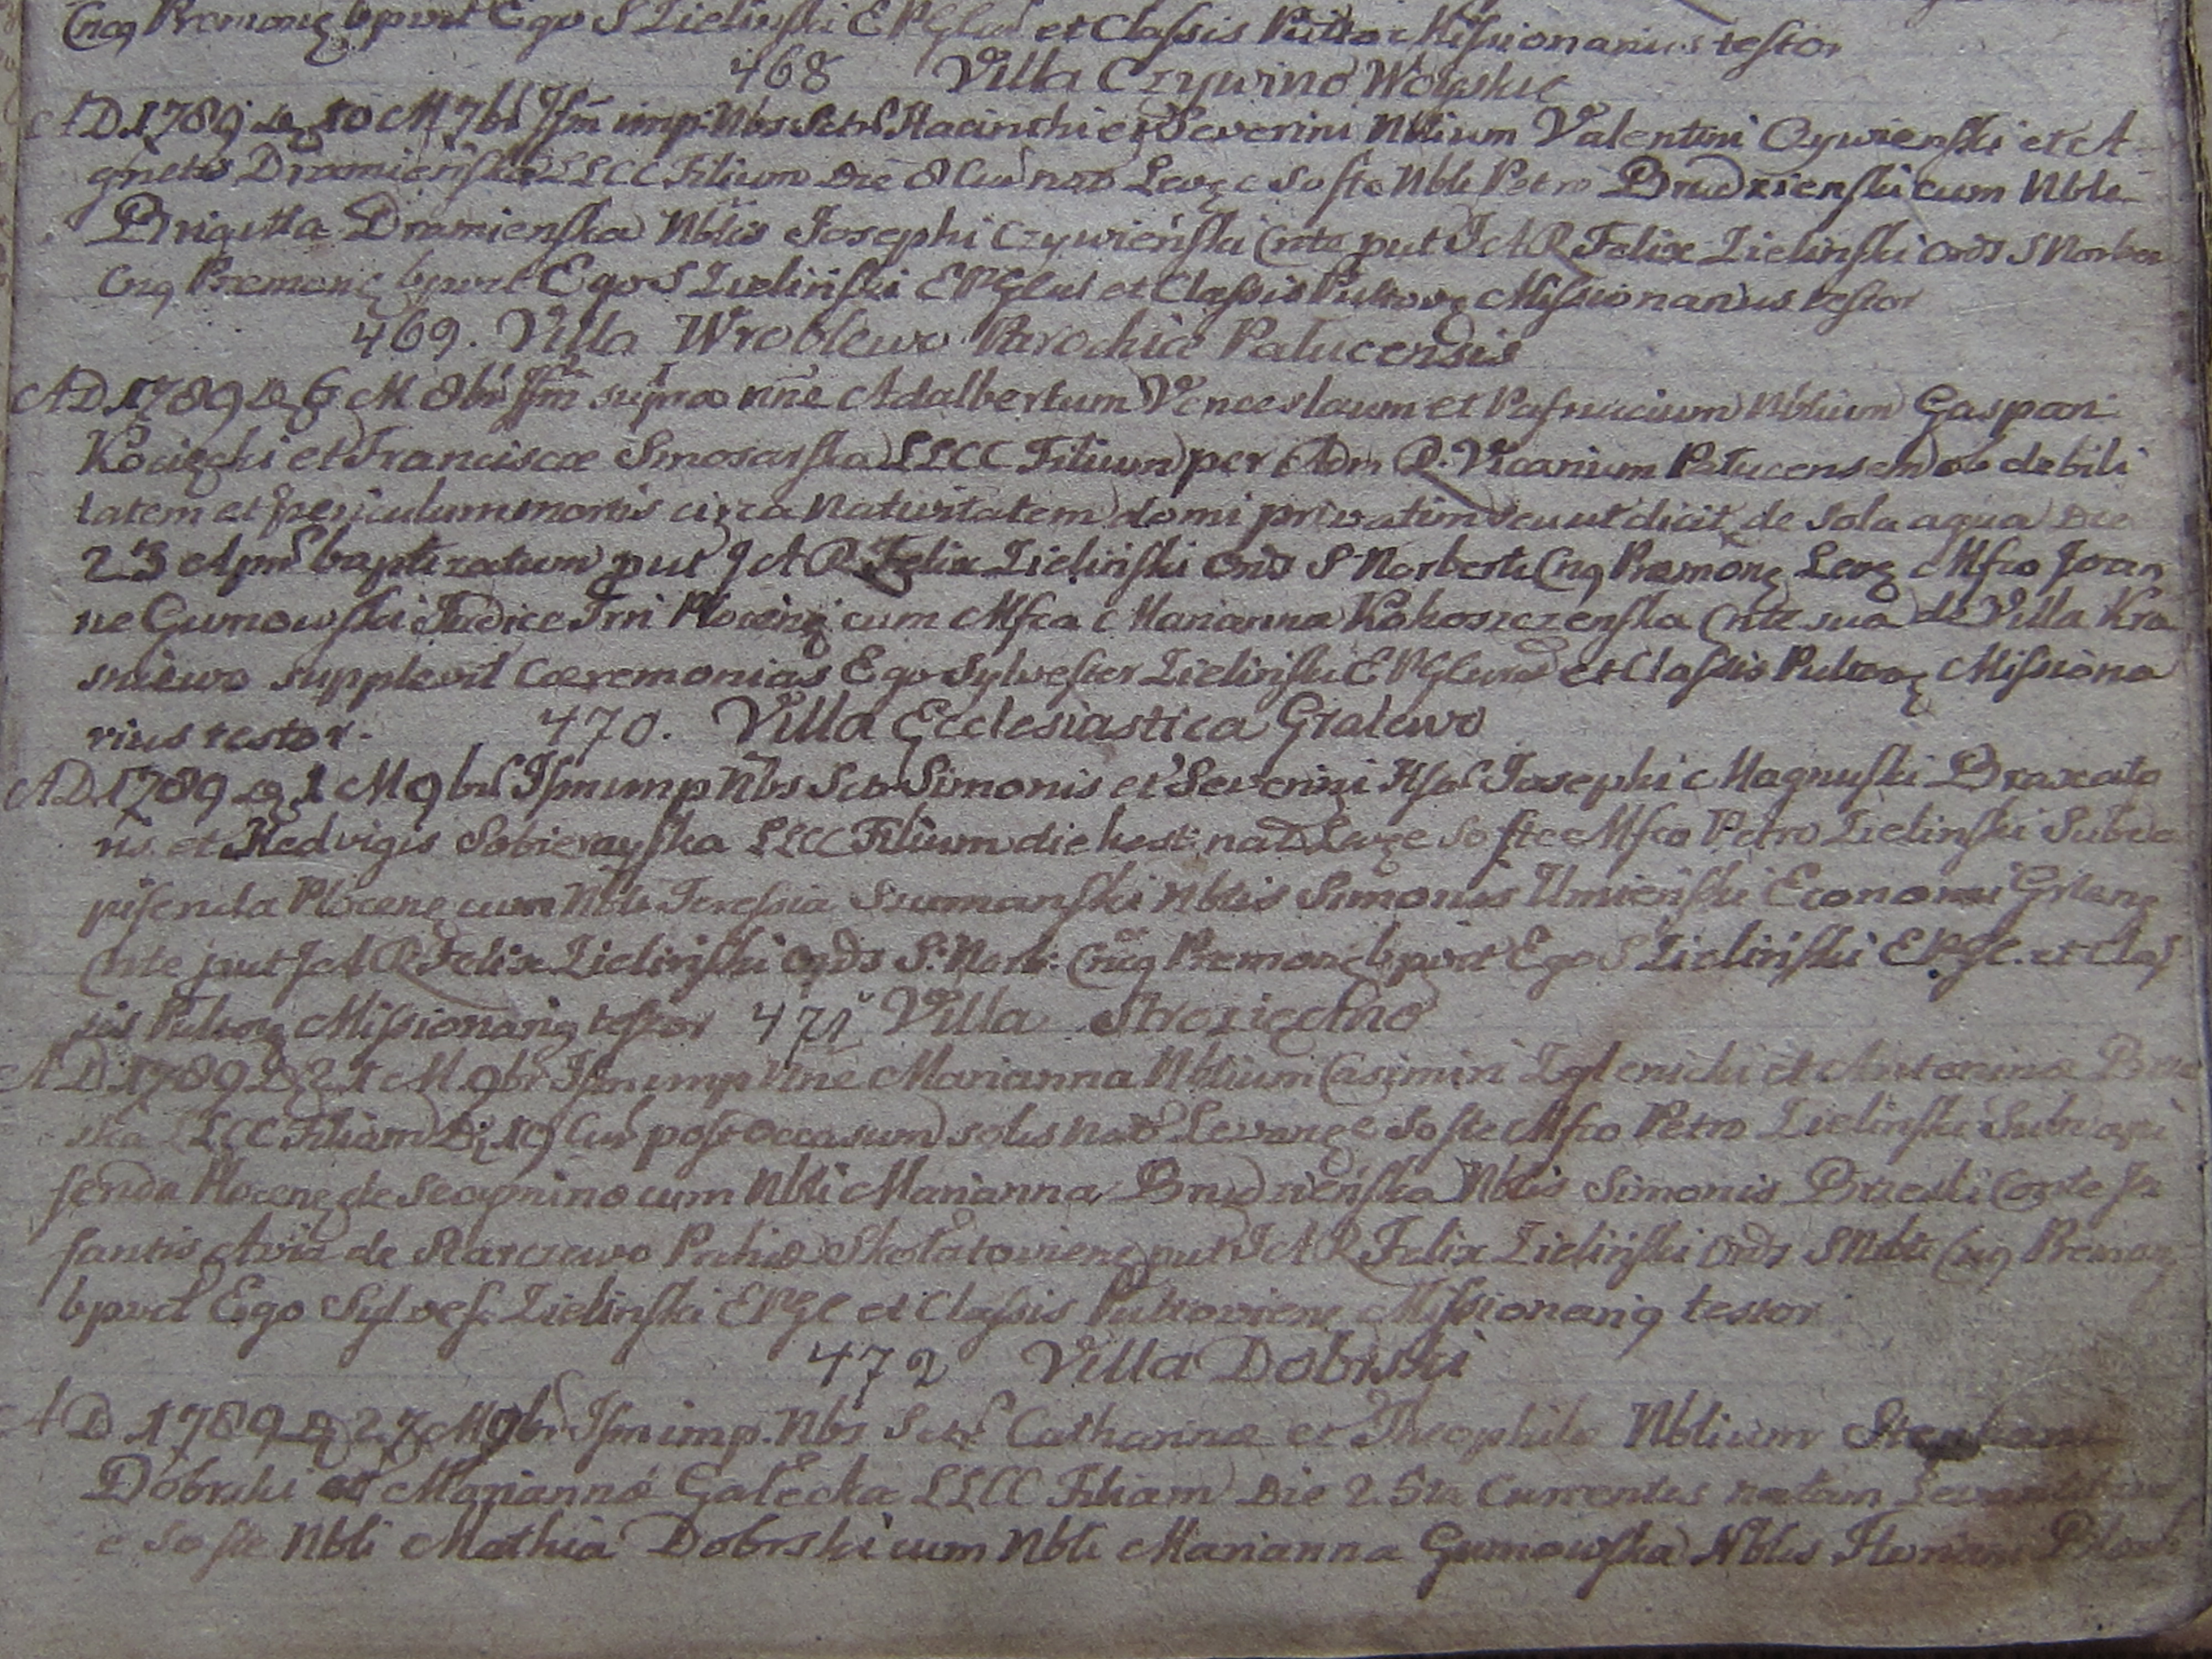 Cnq Premonç bpvit Ego S Zielinski EPGlus et Classis Missionarius testor
468 Villa Czywino Wolskie
AD 1789 10 M 7bris Ifm imp Nbs Sctrl Hacinthi et Severini Nblium Valentini Czywienski et A-
gnetis Dramienska LLCC Filium Die 8 Cur nat Levçe So fte Nbli Petro Brudzienski cum Nbli
Brigitta Dramienska Nblis Josephi Czywieński Cnte put J A R Felix Zielinski Ords S Norber
Cnq Premonç bpvit Ego S Zieliński EPGlus et Classis Pultovç Missionarius testor
469. Villa Wroblewo Parochiæ Palucensis
AD 1789 6 M 8bris Ifm supra nne Adalbertum Venceslaum et Pafnucium Nblium Gaspari
Kocięcki et Franciscæ Smosarska LLCC Filium per Adm R. Vicarium Palucensem ob debili
tatem et periculum mortis circa nativitatem domi privatim seu ut dicit de sola aqua Die
23 Apris baptizatum put J A R Felix Zieliński Ords S Norberti Cnq Premonç Levç Mfco Joan
ne Gumowski Judice Trri Plocenç cum Mfca Marianna Kokoszczenska Cnte sua de Villa Kra
sniewo supplevit Cæremonias Ego Sylvester Zieliński EPGlus et Classis Pultovç Missiona
rius testor.
470. Villa Ecclesiastica Gralewo
AD 1789 1 M 9bris Ifm imp Nbs Sctr Simonis et Severini Josephi Magnuski Braxato
ris et Hedvigis Sobierayska LLCC Filium die hest: nat Levçe So fte Mfco Petro Zielinski Subva
pisenda Plocenç cum Nbli Teressia Szumanski Nblis Simonis Umieński Economi Gralenç
Cnte put J A R Felix Zieliński Ords S. Norb: Cnq Premonç bpvit Ego S Zieliński EPGl. et Clas
sis Pultovç Missionariq testor
471 Villa Strozięcino
AD 1789 21 M 9br Ifm imp nne Marianna Nblium Casimiri Zglenicki et Antoninæ
ska LLCC Filiam D 19 Cur post occasum solis nat Levançe So fte Mfco Petro Zielinski Subvapi
senda Plocenç de Scepnino cum Nbli Marianna Brudzieńska Nblis Simonis Brzeski Cnte In
fantis Avia de Starczewo Pchiæ Skołatoviens put J A R Felix Zieliński Ords S Nbti Cnq Premon
bpvit Ego Sylves: Zielinski EPGl et Classis Pultoviens Missionariq testor
472 Villa Dobrski
AD 1789 27 M 9br Ifm imp. Nbs Sctr Catharinæ et Theophile Nblium Stephani
Dobrski et Mariannæ Gałecka LLCC Filiam Die 25ta Currentis natam
e So fte Nbli Mathia Dobrski cum Nbli Marianna Gumowska Nblis Floriani